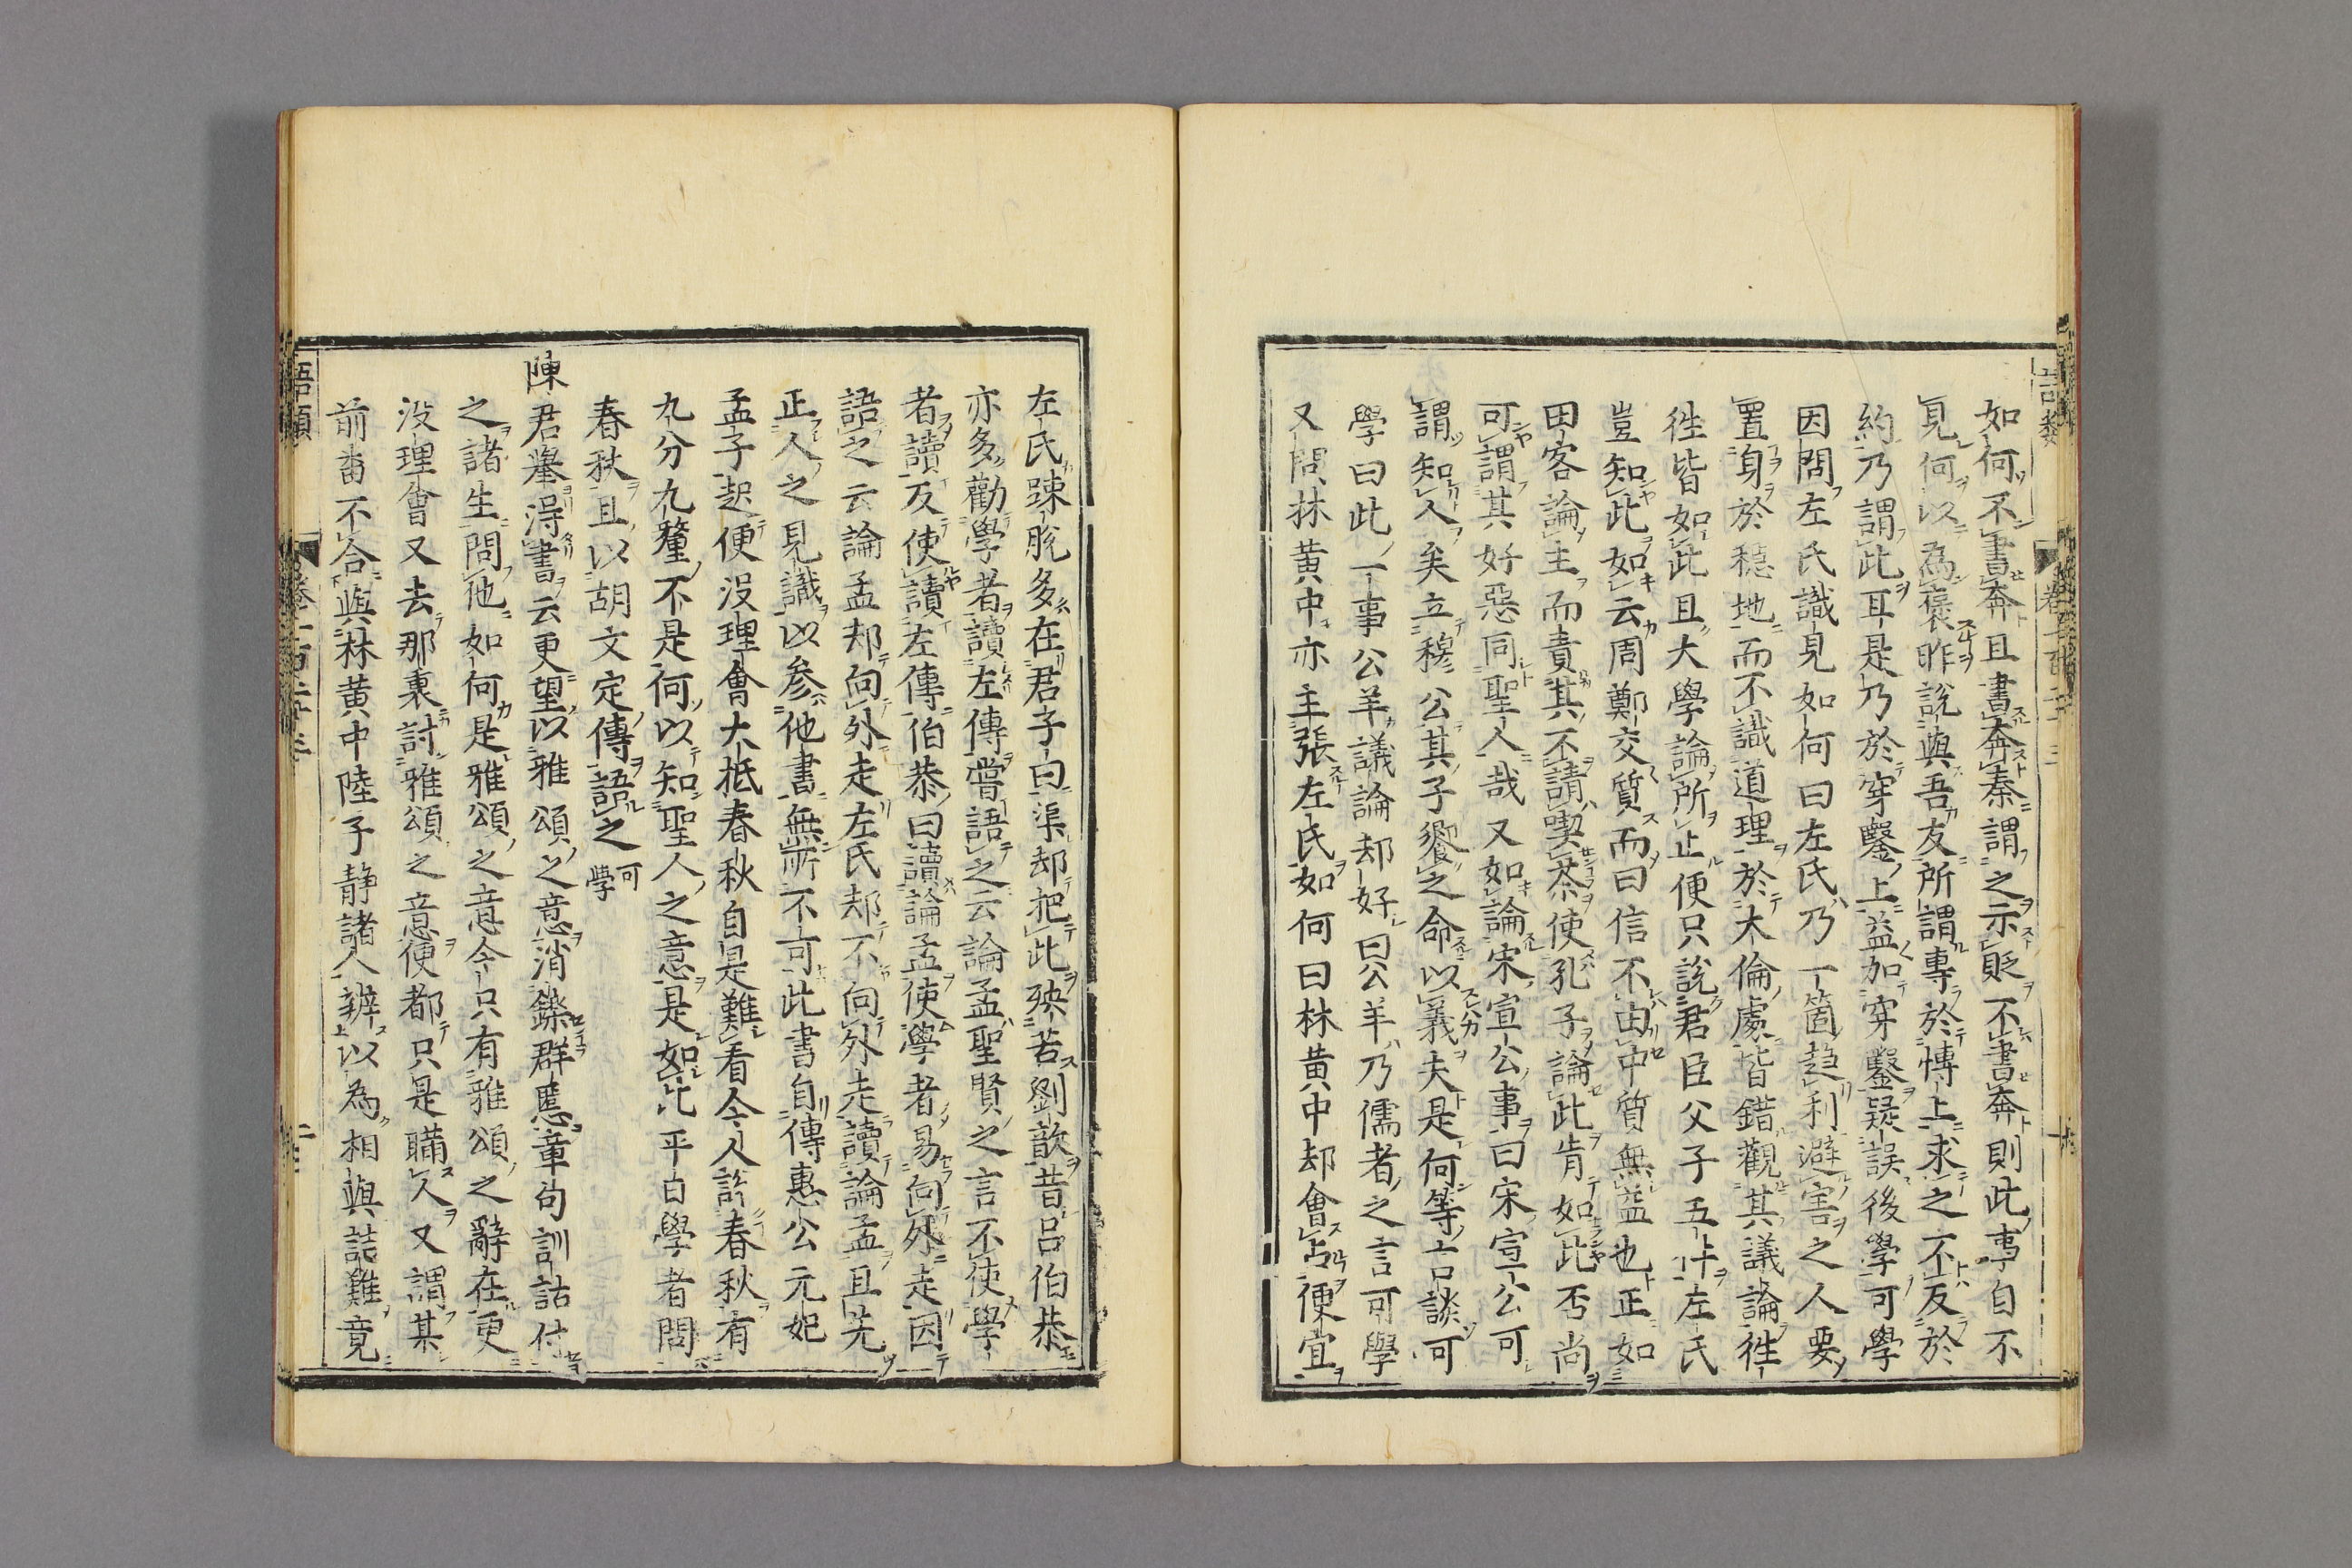 如何不書奔且書奔秦謂之示貶不書奔則此事自不
見何以為褒昨說與吾友所謂專於博上求之不反於
約乃謂此耳是乃於穿鑿上益加穿鑿疑誤後學可學
因問左氏識見如何曰左氏乃一箇趍利避害之人要
置身於穩地而不識道理於大倫處皆錯觀其議論徃
徃皆如此且大學論所止便只說君臣父子五件左氏
豈知此如云周鄭交質而曰信不由中質無益也正如
田客論主而責其不請喫茶使孔子論此肯如此否尚
可謂其好惡同聖人哉又如論宋宣公事曰宋宣公可
謂知人矣立穆公其子饗之命以義夫是何等言談可
學曰此一事公羊議論却好曰公羊乃儒者之言可學
又問林黄中亦主張左氏如何曰林黄中却會占便宜
左氏踈脫多在君子曰渠却把此殃若劉歆昔呂伯恭
亦多勸學者讀左傳嘗語之云論孟聖賢之言不使學
者讀反使讀左傳伯恭曰讀論孟使學者易向外走因
語之云論孟却向外走左氏却不向外走讀論孟且先
正人之見識以参他書無所不可此書自傳惠公元妃
孟子起便没理會大抵春秋自是難看今人說春秋有
九分九釐不是何以知聖人之意是如此平白學者問
春秋且以胡文定傳語之可學
陳君舉得書云更望以雅頌之意消鑠群慝章句訓詁付
之諸生問他如何是雅頌之意今只有雅頌之辭在更
没理會又去那裏討雅頌之意便都只是瞞人又謂某
前畨不合與林黄中陸子静諸人辨以為相與詰難竟
語類
卷一百二十三